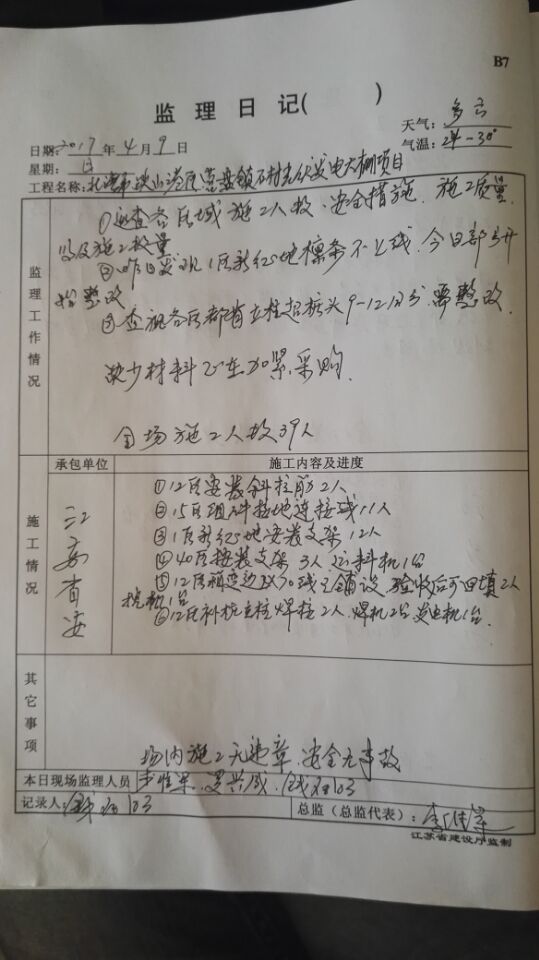 B7
监 理 日 记( )
天气: 多云
日期: 2017 年 4 月 9 日
气温: 24-30°
星期: 日
工程名称: 北海市铁山港区 村光伏发电大棚项目
监理工作情况
①巡查各区域施工人数、安全措施、施工质量
以及施工数量
②昨日发现1区新红地檩条不上线,今日部分开
始整改
③查视各区都有立柱超桩头9-12公分,要整改.
缺少材料正在加紧采购.
全场施工人数39人
承包单位
施工内容及进度
施工情况
江苏省安
①12区安装斜拉筋2人
②15区组件接地连接线11人
③1区新红地安装支架12人
④40区接装支架3人 运料机1台
⑤12区 边 线已铺设,验收后可回填2人
挖机1台
⑥12区补桩立柱焊接2人.焊机2台 发电机1台.
其它事项
场内施工无违章.安全无事故
本日现场监理人员
记录人:
总监(总监代表):
江苏省建设厅监制